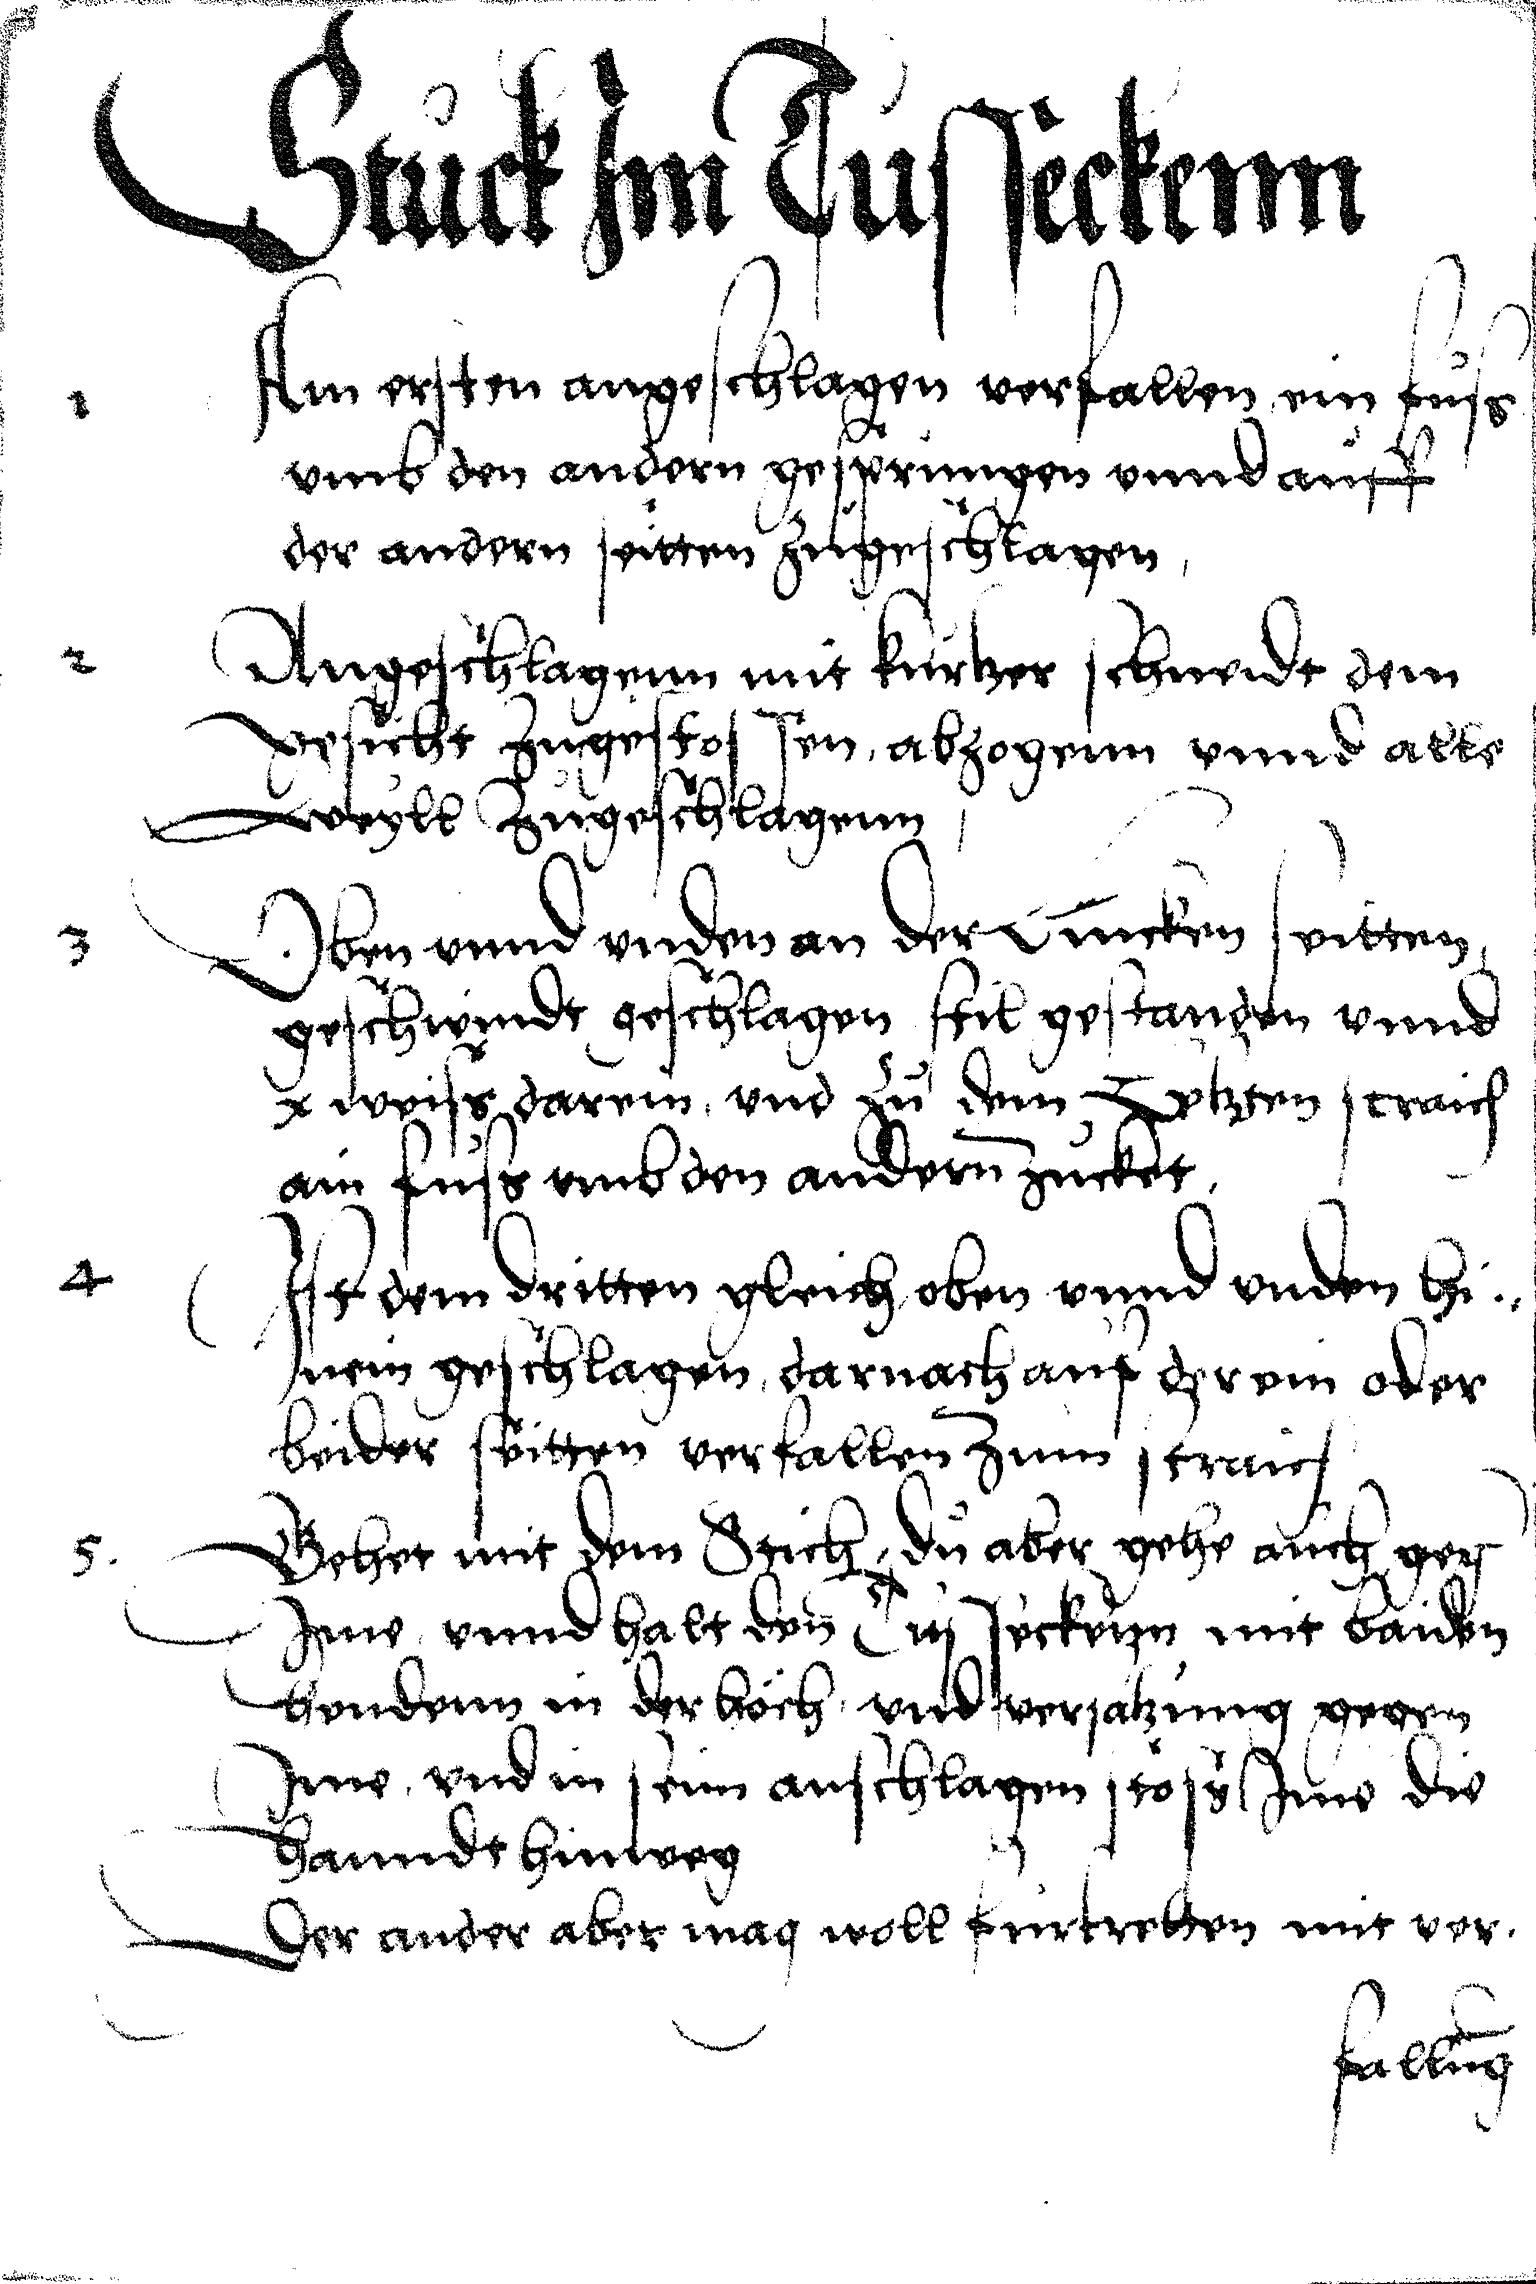 Stuck Im Tusseckenn
1 Am ersten angeschlagen verfallen ein fuss
vmb den andern gesprungen vnnd auff
der andern seitten zugeschlagen,
2 Angeschlagenn mit kurtzer schneidt dem
gesicht zugestossen, abzogenn vnnd alle
weyll zugeschlagenn,
3 Oben vnnd vnden an der Lincken seitten,
geschwindt geschlagen stil gestanden vnnd
x weiss darein, vnd zu dem Letzten straich
ain fuss vmb den andern zucket,
4 Ist dem dritten gleich oben vnnd vnden hi..
nein geschlagen, darnach auf der ein oder
beider seitten verfallen zum straich
5. Gehet mit dem Stich, du aber gehe auch gen
Ime, vnnd halt den Tusseckenn mit baiden
hendenn in der höch vnd versatzung gegen
Ime, vnd in seim anschlagen stoss Ime die
hanndt hinweg
Der ander aber mag woll fürtretten mit ver.
fallung